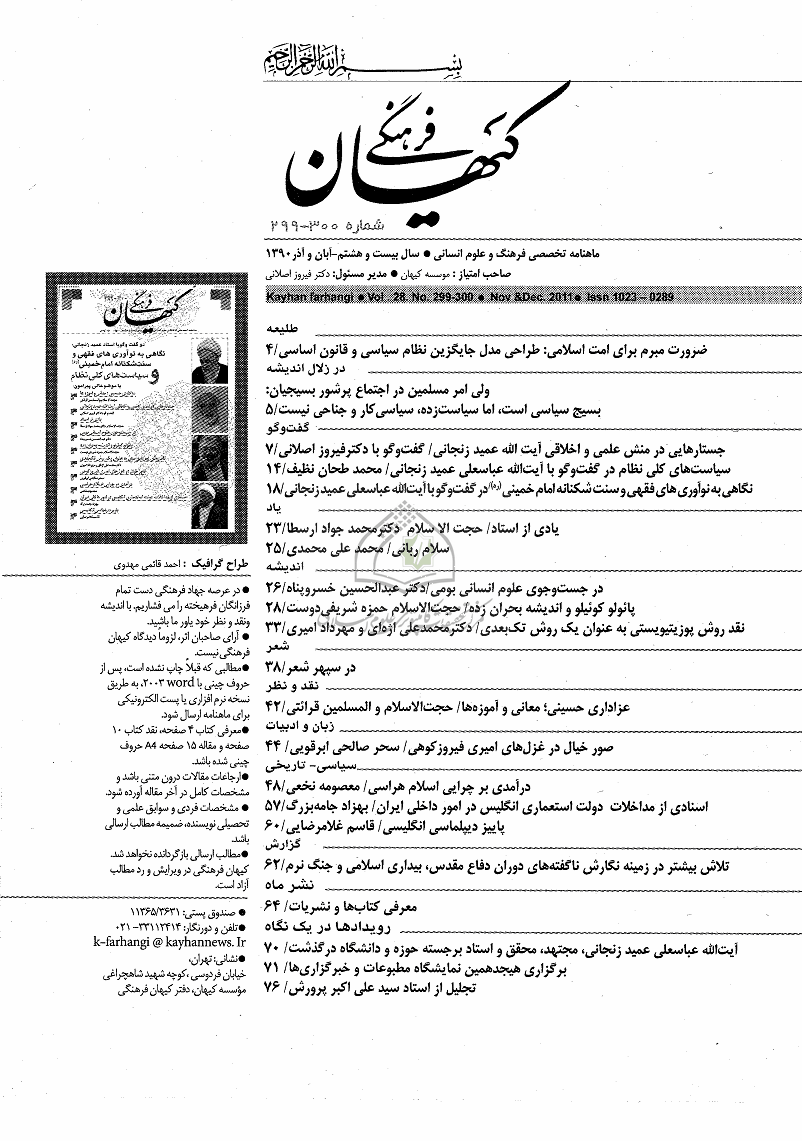 بسم الله الرحمن الرحیم
کیهان فرهنگی
شماره ۳۰۰-۲۹۹
ماهنامه تخصصی فرهنگ و علوم انسانی ● سال بیست و هشتم-آبان و آذر ۱۳۹۰
صاحب امتیاز : موسسه کیهان ● مدیر مسئول: دکتر فیروز اصلانی
Kayhan farhangi ● Vol . 28. No. 299-300 ● Nov &Dec. 2011● Issn 1023 – 0289
طلیعه
ضرورت مبرم برای امت اسلامی: طراحی مدل جایگزین نظام سیاسی و قانون اساسی/۴
در زلال اندیشه
ولی امر مسلمین در اجتماع پرشور بسیجیان:
بسیج سیاسی است، اما سیاست‌زده، سیاسی‌کار و جناحی نیست/۵
گفت‌وگو
جستارهایی در منش علمی و اخلاقی آیت الله عمید زنجانی/ گفت‌وگو با دکترفیروز اصلانی/۷
سیاست‌های کلی نظام در گفت‌وگو با آیت‌الله عباسعلی عمید زنجانی/ محمد طحان نظیف/۱۴
نگاهی به نوآوری‌های فقهی و سنت شکنانه امام خمینی (ره)/در گفت‌وگو با آیت‌الله عباسعلی عمید زنجانی/۱۸
یاد
یادی از استاد/ حجت الا سلام دکترمحمد جواد ارسطا/۲۳
سلام ربانی/ محمد علی محمدی/۲۵
اندیشه
در جست‌وجوی علوم انسانی بومی/دکتر عبدالحسین خسروپناه/۲۶
پائولو کوئیلو و اندیشه بحران زده/ حجت‌الاسلام حمزه شریفی‌دوست/۲۸
نقد روش پوزیتیویستی به عنوان یک روش تک‌بعدی/ دکترمحمدعلی اژه‌ای و مهرداد امیری/۳۳
شعر
در سپهر شعر/۳۸
نقد و نظر
عزاداری حسینی؛ معانی و آموزه‌ها/ حجت‌الاسلام و المسلمین قرائتی/۴۲
زبان و ادبیات
صور خیال در غزل‌های امیری فیروزکوهی/ سحر صالحی ابرقویی/ ۴۴
سیاسی- تاریخی
درآمدی بر چرایی اسلام هراسی/ معصومه نخعی/۴۸
اسنادی از مداخلات دولت استعماری انگلیس در امور داخلی ایران/ بهزاد جامه‌بزرگ/۵۷
پاییز دیپلماسی انگلیسی/ قاسم غلامرضایی/۶۰
گزارش
تلاش بیشتر در زمینه نگارش ناگفته‌های دوران دفاع مقدس، بیداری اسلامی و جنگ نرم/۶۲
نشر ماه
معرفی کتاب‌ها و نشریات/ ۶۴
رویدادها در یک نگاه
آیت‌الله عباسعلی عمید زنجانی، مجتهد، محقق و استاد برجسته حوزه و دانشگاه درگذشت/ ۷۰
برگزاری هیجدهمین نمایشگاه مطبوعات و خبرگزاری‌ها/ ۷۱
تجلیل از استاد سید علی اکبر پرورش/ ۷۶
کیهان فرهنگی
در گفت وگو با استاد عمید زنجانی:
نگاهی به نوآوری های فقهی و
سنت‌شکنانه امام خمینی(ره)
و سیاست‌های کلی نظام
طراح گرافیک : احمد قائمی مهدوی
● در عرصه جهاد فرهنگی دست تمام
فرزانگان فرهیخته را می فشاریم. با اندیشه
ونقد و نظر خود یاور ما باشید.
● آرای صاحبان اثر، لزوما دیدگاه کیهان
فرهنگی نیست.
●مطالبی که قبلاً چاپ نشده است، پس از
حروف چینی با word ۲۰۰۳، به طریق
نسخه نرم افزاری یا پست الکترونیکی
برای ماهنامه ارسال شود.
●معرفی کتاب ۴ صفحه، نقد کتاب ۱۰
صفحه و مقاله ۱۵ صفحه A4 حروف
چینی شده باشد.
●ارجاعات مقالات درون متنی باشد و
مشخصات کامل در آخر مقاله آورده شود.
● مشخصات فردی و سوابق علمی و
تحصیلی نویسنده، ضمیمه مطالب ارسالی
باشد.
●مطالب ارسالی بازگردانده نخواهد شد.
کیهان فرهنگی در ویرایش و رد مطالب
آزاد است.
● صندوق پستی: ۱۱۳۶۵/۳۶۳۱
●تلفن و دورنگار: ۳۳۱۱۲۴۱۴- ۰۲۱
k-farhangi @ kayhannews. Ir
●نشانی: تهران،
خیابان فردوسی ،کوچه شهید شاهچراغی
مؤسسه کیهان، دفتر کیهان فرهنگی